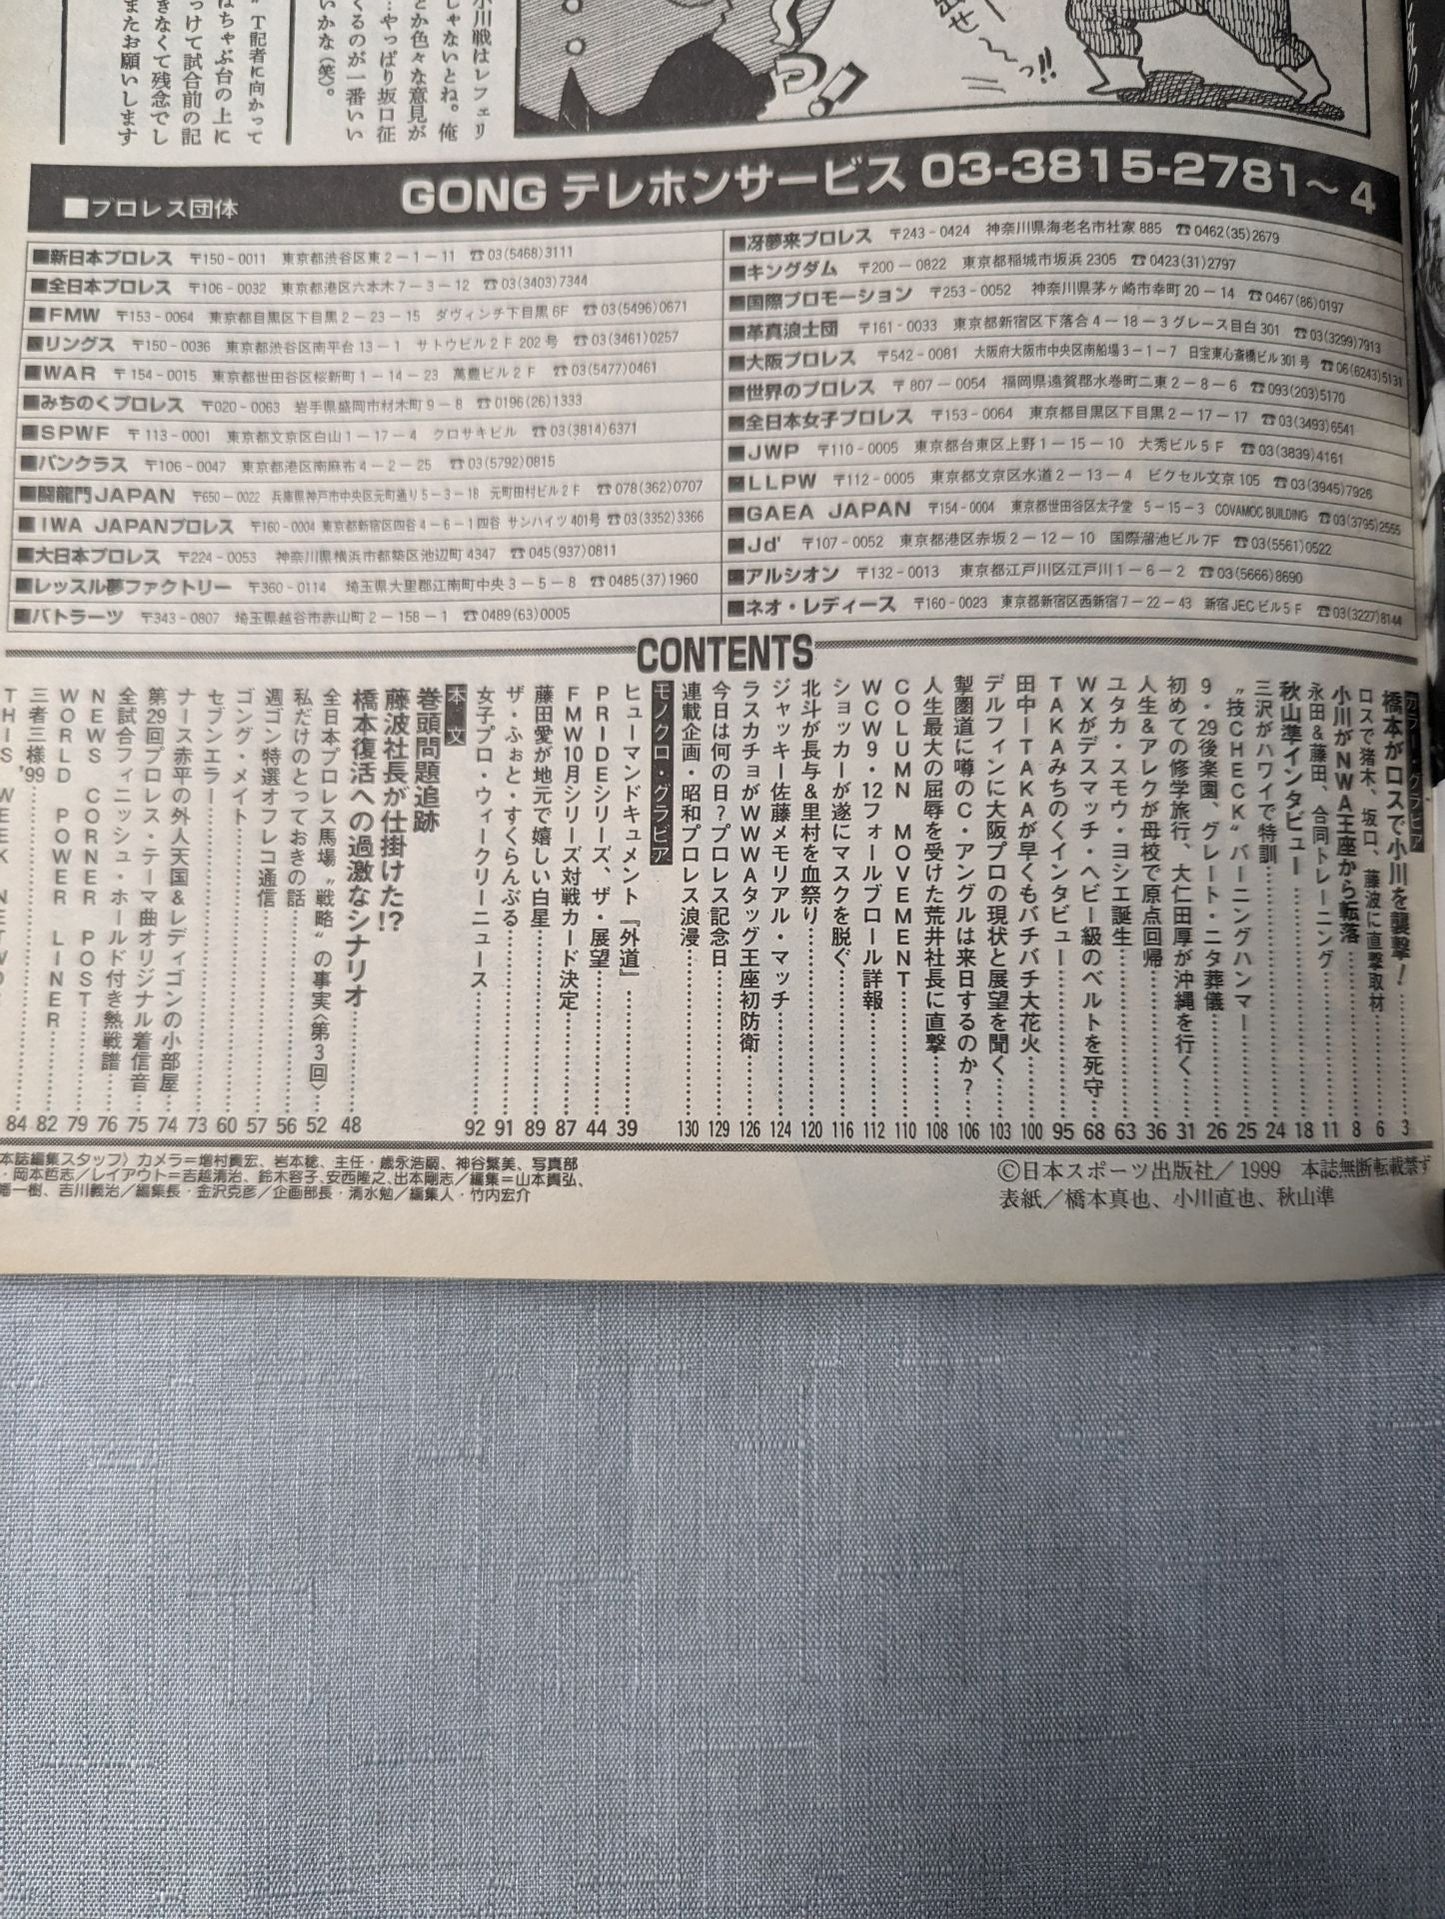 小川戦はレフェリ
しゃないとね。俺
とか色々な意見が
…やっぱり坂口征
くるのが一番いい
いかな（笑）。
”T記者に向かって
はちゃぶ台の上に
っけて試合前の記
きなくて残念でし
またお願いします
出せ〜〜っ!!
っ!
■プロレス団体
GONG テレホンサービス 03-3815-2781〜4
■新日本プロレス 〒150-0011 東京都渋谷区東2-1-11 ☎03(5468)3111
■全日本プロレス 〒106-0032 東京都港区六本木7-3-12 ☎03(3403)7344
■FMW 〒153-0064 東京都目黒区下目黒2-23-15 ダヴィンチ下目黒6F ☎03(5496)0671
■リングス 〒150-0036 東京都渋谷区南平台13-1 サトウビル2F 202号 ☎03(3461)0257
■WAR 〒154-0015 東京都世田谷区桜新町1-14-23 萬豊ビル2F ☎03(5477)0461
■みちのくプロレス 〒020-0063 岩手県盛岡市材木町9-8 ☎0196(26)1333
■SPWF 〒113-0001 東京都文京区白山1-17-4 クロサキビル ☎03(3814)6371
■パンクラス 〒106-0047 東京都港区南麻布4-2-25 ☎03(5792)0815
■闘龍門JAPAN 〒650-0022 兵庫県神戸市中央区元町通り5-3-18 元町田村ビル2F ☎078(362)0707
■IWA JAPANプロレス 〒160-0004 東京都新宿区四谷4-6-1四谷 サンハイツ401号 ☎03(3352)3366
■大日本プロレス 〒224-0053 神奈川県横浜市都築区池辺町4347 ☎045(937)0811
■レッスル夢ファクトリー 〒360-0114 埼玉県大里郡江南町中央3-5-8 ☎0485(37)1960
■バトラーツ 〒343-0807 埼玉県越谷市赤山町2-158-1 ☎0489(63)0005
■冴夢来プロレス 〒243-0424 神奈川県海老名市社家885 ☎0462(35)2679
■キングダム 〒200-0822 東京都稲城市坂浜2305 ☎0423(31)2797
■国際プロモーション 〒253-0052 神奈川県茅ヶ崎市幸町20-14 ☎0467(86)0197
■革真浪士団 〒161-0033 東京都新宿区下落合4-18-3グレース目白301 ☎03(3299)7913
■大阪プロレス 〒542-0081 大阪府大阪市中央区南船場3-1-7 日宝東心斎橋ビル301号 ☎06(6243)5131
■世界のプロレス 〒807-0054 福岡県遠賀郡水巻町二東2-8-6 ☎093(203)5170
■全日本女子プロレス 〒153-0064 東京都目黒区下目黒2-17-17 ☎03(3493)6541
■JWP 〒110-0005 東京都台東区上野1-15-10 大秀ビル5F ☎03(3839)4161
■LLPW 〒112-0005 東京都文京区水道2-13-4 ビクセル文京105 ☎03(3945)7926
■GAEA JAPAN 〒154-0004 東京都世田谷区太子堂 5-15-3 COVAMOC BUILDING ☎03(3795)2555
■Jd' 〒107-0052 東京都港区赤坂2-12-10 国際溜池ビル7F ☎03(5561)0522
■アルシオン 〒132-0013 東京都江戸川区江戸川1-6-2 ☎03(5666)8690
■ネオ・レディース 〒160-0023 東京都新宿区西新宿7-22-43 新宿JECビル5F ☎03(3227)8144
CONTENTS
カラー・グラビア
橋本がロスで小川を襲撃！……3
ロスで猪木、坂口、藤波に直撃取材……6
小川がNWA王座から転落……8
永田&藤田、合同トレーニング……11
秋山準インタビュー……18
三沢がハワイで特訓……24
“技CHECK”バーニングハンマー……25
9・29後楽園、グレート・ニタ葬儀……26
初めての修学旅行、大仁田厚が沖縄を行く……31
人生&アレクが母校で原点回帰……36
ユタカ・スモウ・ヨシエ誕生……63
WXがデスマッチ・ヘビー級のベルトを死守……68
TAKAみちのくインタビュー……95
田中ーTAKAが早くもバチバチ大花火……100
デルフィンに大阪プロの現状と展望を聞く……103
掣圏道に噂のC・アングルは来日するのか？……106
人生最大の屈辱を受けた荒井社長に直撃……108
COLUMN MOVEMENT……110
WCW9・12フォールブロール詳報……112
ショッカーが遂にマスクを脱ぐ……116
北斗が長与&里村を血祭り……120
ジャッキー佐藤メモリアル・マッチ……124
ラスカチョがWWWAタッグ王座初防衛……126
今日は何の日？プロレス記念日……129
連載企画・昭和プロレス浪漫……130
モノクロ・グラビア
ヒューマンドキュメント『外道』……39
PRIDEシリーズ、ザ・展望……44
FMW10月シリーズ対戦カード決定……87
藤田愛が地元で嬉しい白星……89
ザ・ふぉと・すくらんぶる……91
女子プロ・ウィークリーニュース……92
本文
巻頭問題追跡
藤波社長が仕掛けた!?
橋本復活への過激なシナリオ……48
全日本プロレス馬場“戦略”の事実〈第3回〉……52
私だけのとっておきの話……56
週ゴン特選オフレコ通信……57
ゴング・メイト……60
セブンエラー……73
ナース赤平の外人天国&レディゴンの小部屋……74
第29回プロレス・テーマ曲オリジナル着信音……75
全試合フィニッシュ・ホールド付き熱戦譜……76
NEWS CORNER POST……79
WORLD POWER LINER……82
三者三様'99……84
THIS WEEK NETWO
本誌編集スタッフ〉カメラ＝増村貴宏、岩本稔、主任・歳永浩嗣、神谷繁美、写真部
・岡本哲志／レイアウト＝吉越清治、鈴木容子、安西隆之、出本剛志／編集＝山本貴弘、
幡一樹、吉川義治／編集長・金沢克彦／企画部長・清水勉／編集人・竹内宏介
©日本スポーツ出版社／1999 本誌無断転載禁ず
表紙／橋本真也、小川直也、秋山準